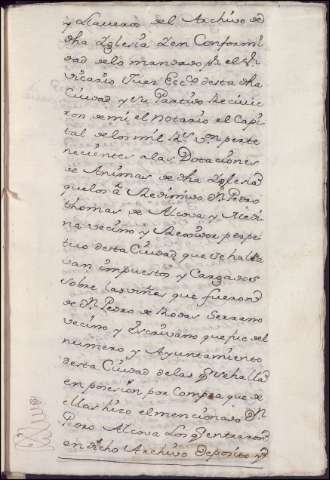 y llaveros del Archivo de
dha Iglesia en Conformi
dad de lo mandado pr el Sr
Vicario Juez Ecco desta dha
Ciudad y su Partido Recivie
ron de mi el Notario el Capi
tal de los mil Rs Vn perte
necientes a las Dotaciones
de Animas de dha Iglesia
que los a Redimido Dn Pedro
thomas de Alcova y Medi
na vecino y Rexidor perpe
tuo desta Ciudad que se halla
van impuestos y Cargados
sobre las viñas que fueron
de Dn Pedro de Rodas Serrano
vecino y Escrivano que fue del
numero y Ayuntamiento
desta Ciudad de las qe se halla
en posesion por compra que de
ellas hizo el mencionado Dn
Pdro Alcova los qe entraron
en dicho Archivo deposito y